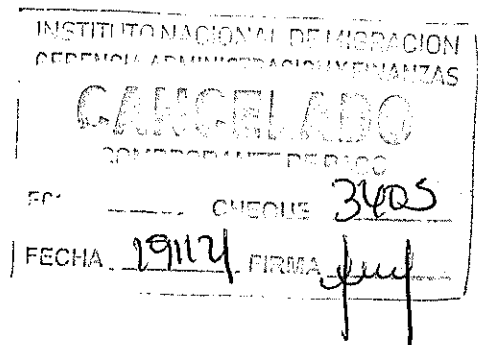 INSTITUTO NACIONAL DE MIGRACION
GERENCIA ADMINISTRACION Y FINANZAS
CANCELADO
COMPROBANTE DE PAGO
CHEQUE 3405
FECHA FIRMA